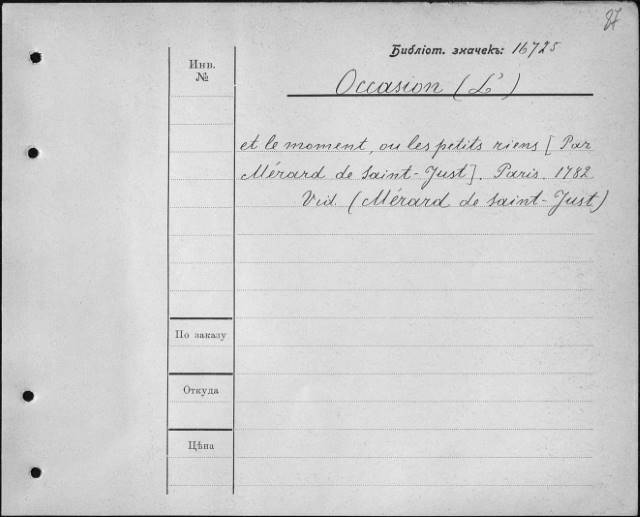 87
Библіот. значекъ: 16725
Инв. №
Occasion (L')
et le moment, ou les petits riens [Par
Mérard de Saint-Just]. Paris. 1782
Vid. (Mérard de Saint-Just)
По заказу
Откуда
Цѣна